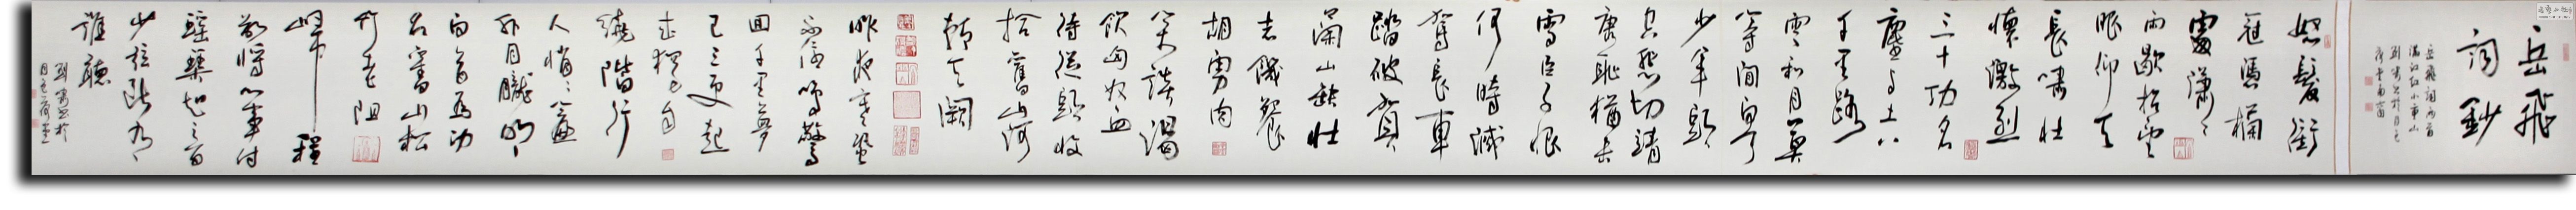 岳飛
詞鈔
岳飛詞兩首
滿江紅小重山
怒髮衝
冠憑欄
處瀟瀟
雨歇抬望
眼仰天
長嘯壯
懷激烈
三十功名
塵與土八
千里路
雲和月莫
等閒白了
少年頭
空悲切靖
康恥猶未
雪臣子恨
何時滅
駕長車
踏破賀
蘭山缺壯
志饑餐
胡虜肉
笑談渴
飲匈奴血
待從頭收
拾舊山河
朝天闕
昨夜寒蛩
不住鳴驚
回千里夢
已三更起
來獨自
繞階行
人悄悄簾
外月朧明
白首為功
名舊山松
竹老阻
歸程
欲將心事付
瑤琴知音
少絃斷有
誰聽